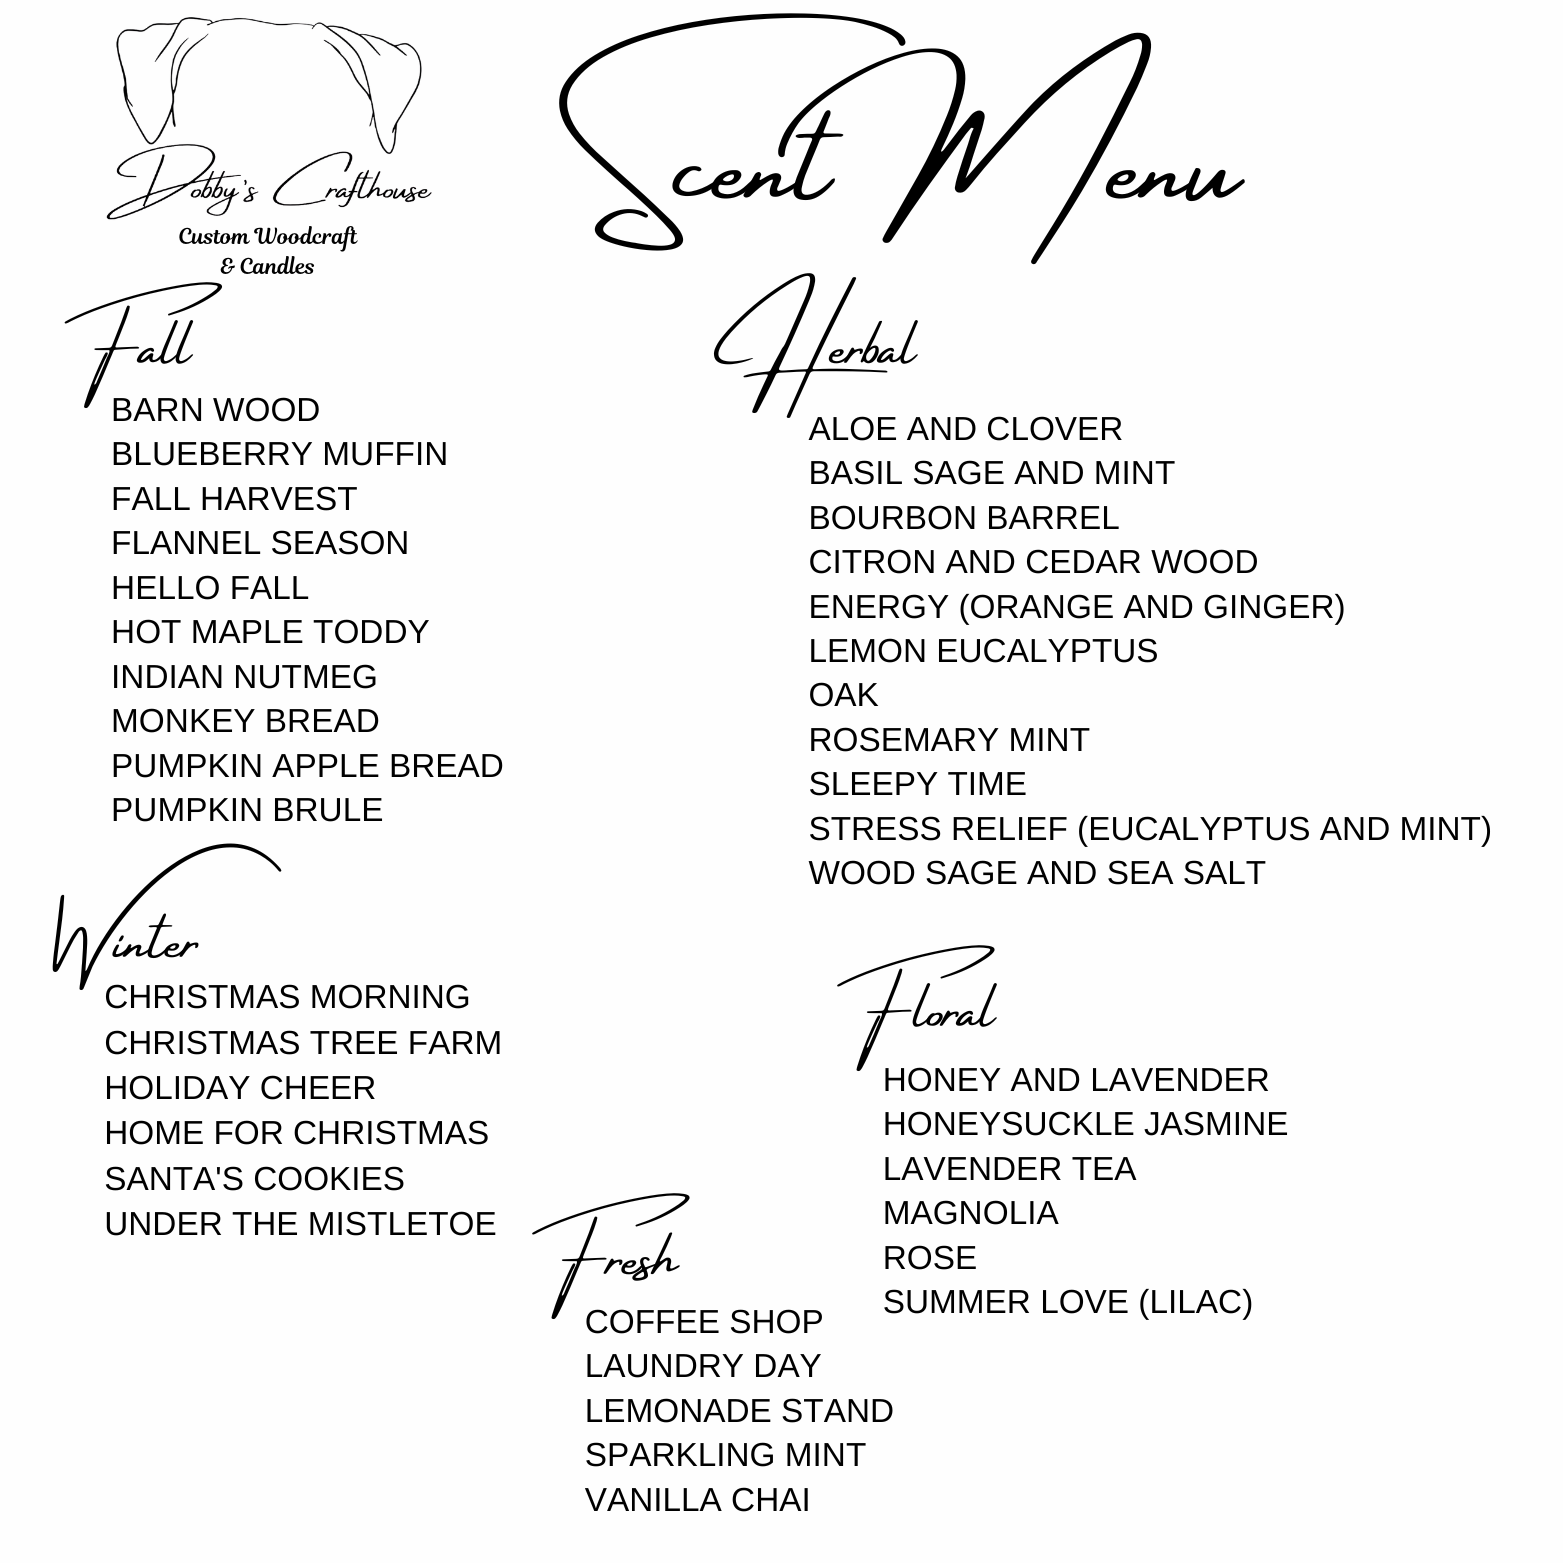 Dobby's Crafthouse
Custom Woodcraft
& Candles
Scent Menu
Fall
BARN WOOD
BLUEBERRY MUFFIN
FALL HARVEST
FLANNEL SEASON
HELLO FALL
HOT MAPLE TODDY
INDIAN NUTMEG
MONKEY BREAD
PUMPKIN APPLE BREAD
PUMPKIN BRULE
Winter
CHRISTMAS MORNING
CHRISTMAS TREE FARM
HOLIDAY CHEER
HOME FOR CHRISTMAS
SANTA'S COOKIES
UNDER THE MISTLETOE
Herbal
ALOE AND CLOVER
BASIL SAGE AND MINT
BOURBON BARREL
CITRON AND CEDAR WOOD
ENERGY (ORANGE AND GINGER)
LEMON EUCALYPTUS
OAK
ROSEMARY MINT
SLEEPY TIME
STRESS RELIEF (EUCALYPTUS AND MINT)
WOOD SAGE AND SEA SALT
Floral
HONEY AND LAVENDER
HONEYSUCKLE JASMINE
LAVENDER TEA
MAGNOLIA
ROSE
SUMMER LOVE (LILAC)
Fresh
COFFEE SHOP
LAUNDRY DAY
LEMONADE STAND
SPARKLING MINT
VANILLA CHAI